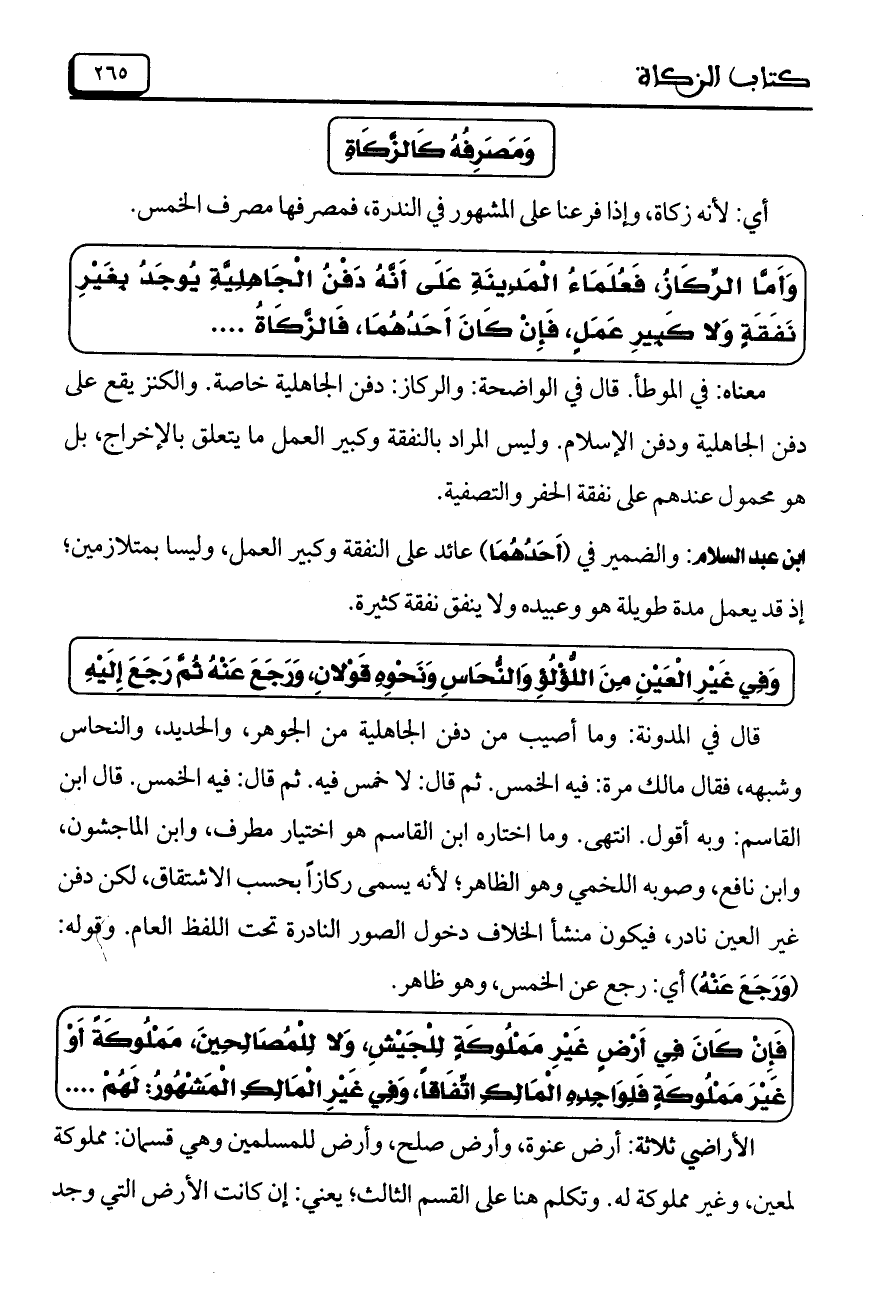 كتاب الزكاة
٢٦٥
وَمَصَرِفُهُ كَالزَّكَاةِ
أي: لأنه زكاة، وإذا فرعنا على المشهور في الندرة، فمصرفها مصرف الخمس.
وَأَمَّا الرِّكَازُ، فَعُلَمَاءُ الْمَدِينَةِ عَلَى أَنَّهُ دَفْنُ الْجَاهِلِيَّةِ يُوجَدُ بِغَيْرِ
نَفَقَةٍ وَلا كَبِيرِ عَمَلٍ، فَإِنْ كَانَ أَحَدُهُمَا، فَالزَّكَاةُ ....
معناه: في الموطأ. قال في الواضحة: والركاز: دفن الجاهلية خاصة. والكنز يقع على
دفن الجاهلية ودفن الإسلام. وليس المراد بالنفقة وكبير العمل ما يتعلق بالإخراج، بل
هو محمول عندهم على نفقة الحفر والتصفية.
ابن عبد السلام: والضمير في (أَحَدُهُمَا) عائد على النفقة وكبير العمل، وليسا بمتلازمين؛
إذ قد يعمل مدة طويلة هو وعبيده ولا ينفق نفقة كثيرة.
وَفِي غَيْرِ الْعَيْنِ مِنَ اللُّؤْلُؤِ وَالنُّحَاسِ وَنَحْوِهِ قَوْلانِ، وَرَجَعَ عَنْهُ ثُمَّ رَجَعَ إِلَيْهِ
قال في المدونة: وما أصيب من دفن الجاهلية من الجوهر، والحديد، والنحاس
وشبهه، فقال مالك مرة: فيه الخمس. ثم قال: لا خمس فيه. ثم قال: فيه الخمس. قال ابن
القاسم: وبه أقول. انتهى. وما اختاره ابن القاسم هو اختيار مطرف، وابن الماجشون،
وابن نافع، وصوبه اللخمي وهو الظاهر؛ لأنه يسمى ركازاً بحسب الاشتقاق، لكن دفن
غير العين نادر، فيكون منشأ الخلاف دخول الصور النادرة تحت اللفظ العام. وقوله:
(وَرَجَعَ عَنْهُ) أي: رجع عن الخمس، وهو ظاهر.
فَإِنْ كَانَ فِي أَرْضٍ غَيْرِ مَمْلُوكَةٍ لِلْجَيْشِ، وَلا لِلْمُصَالِحِينَ، مَمْلُوكَةً أَوْ
غَيْرَ مَمْلُوكَةٍ فَلِوَاجِدِهِ الْمَالِكِ اتِّفَاقاً، وَفِي غَيْرِ الْمَالِكِ الْمَشْهُورُ: لَهُمْ ....
الأراضي ثلاثة: أرض عنوة، وأرض صلح، وأرض للمسلمين وهي قسمان: مملوكة
لمعين، وغير مملوكة له. وتكلم هنا على القسم الثالث؛ يعني: إن كانت الأرض التي وجد